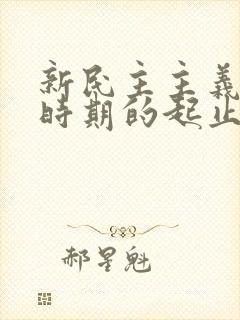 新民主主義
時期的起止
郝星魁